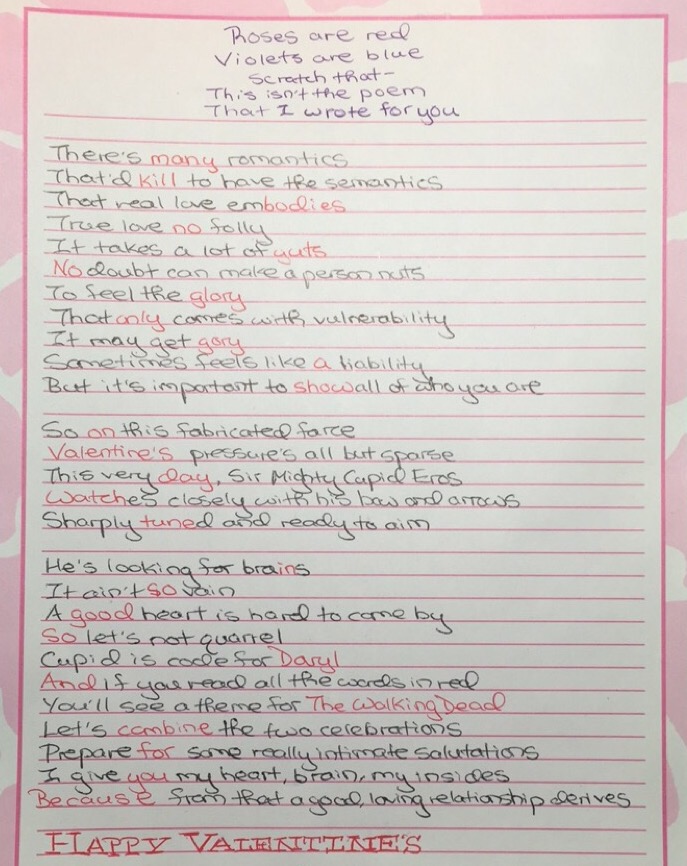 Roses are red
Violets are blue
Scratch that-
This isn't the poem
That I wrote for you
There's many romantics
That'd kill to have the semantics
That real love embodies
True love no folly
It takes a lot of guts
No doubt can make a person nuts
To feel the glory
That only comes with vulnerability
It may get gory
Sometimes feels like a liability
But it's important to show all of who you are
So on this fabricated farce
Valentine's pressure's all but sparse
This very day, Sir Mighty Cupid Eros
Watches closely with his bow and arrows
Sharply tuned and ready to aim
He's looking for brains
It ain't so vain
A good heart is hard to come by
So let's not quarrel
Cupid is code for Daryl
And if you read all the words in red
You'll see a theme for The Walking Dead
Let's combine the two celebrations
Prepare for some really intimate salutations
I give you my heart, brain, my insides
Because from that a good, loving relationship derives
HAPPY VALENTINE'S